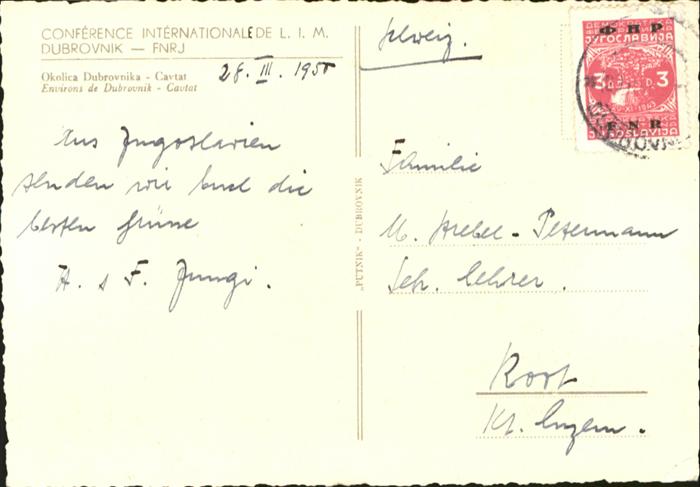 CONFÉRENCE INTÉRNATIONALE DE L. I. M.
DUBROVNIK — FNRJ
Okolica Dubrovnika - Cavtat
Environs de Dubrovnik - Cavtat
28. III. 1950
Aus Jugoslavien
senden wir Euch die
besten Grüsse
H. s F. Jungi.
„PUTNIK“ - DUBROVNIK
Schweiz.
ДЕМОКРАТСКА
ФНР
ЈУГОСЛАВИЈА
3 D. 3
29-XI-1943
FNR
JUGOSLAVIJA
Familie
M. Krebel - Petermann
Sek. Lehrer.
Root
Kt. Luzern.